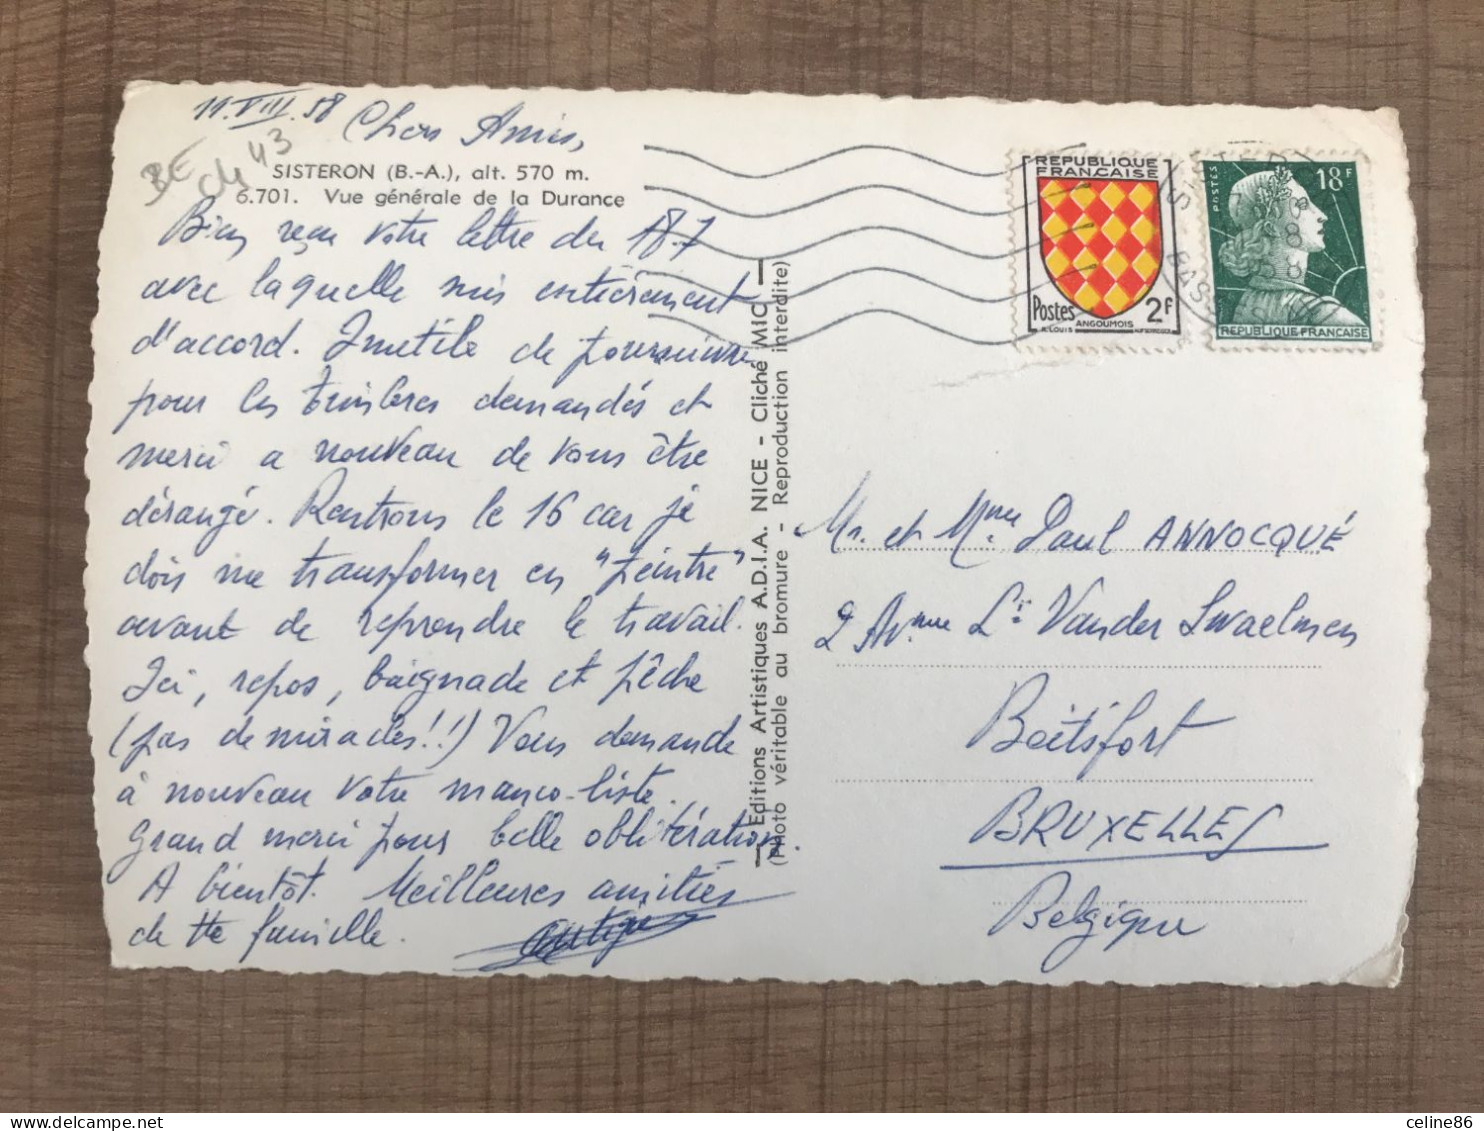 11.VIII.58 Chers Amis,
BE
ch 43
SISTERON (B.-A.), alt. 570 m.
6.701. Vue générale de la Durance
Bien reçu votre lettre du 18.7
avec laquelle suis entièrement
d'accord. Inutile de poursuivre
pour les timbres demandés et
merci a nouveau de vous être
dérangé. Rentrons le 16 car je
dois me transformer en "peintre"
avant de reprendre le travail.
Ici, repos, baignade et pêche
(pas de miracles!!) Vous demande
à nouveau votre manco-liste.
Grand merci pour belle oblitération.
A bientôt. Meilleures amitiés
de tte famille.
Editions Artistiques A.D.I.A. NICE - Cliché MIC
(Photo véritable au bromure - Reproduction interdite)
REPUBLIQUE
FRANÇAISE
Postes 2F
ANGOUMOIS
POSTES 18F
REPUBLIQUE FRANÇAISE
Mr. et Mme Paul ANNOCQUÉ
2 Av.nue Lt Vander Swaelmen
Boitsfort
BRUXELLES
Belgique
celine86